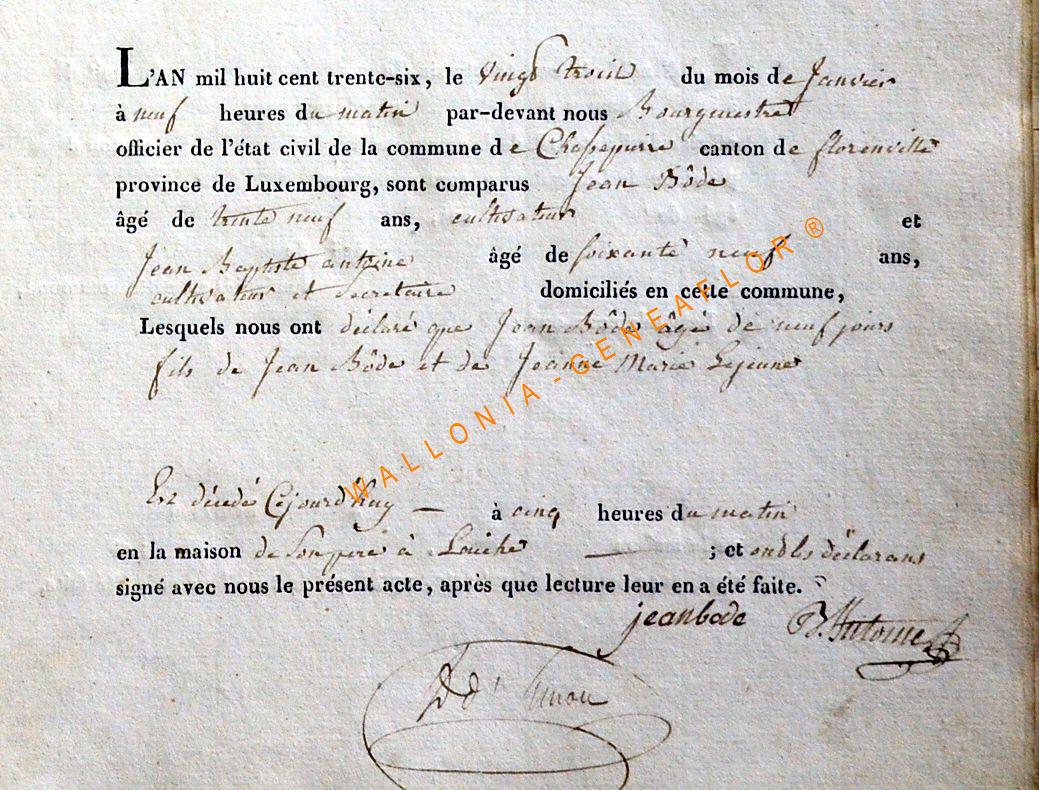 L'AN mil huit cent trente-six, le vingt trois du mois de Janvier
à neuf heures du matin par-devant nous Bourgmestre
officier de l'état civil de la commune de Chassepierre canton de florenville
province de Luxembourg, sont comparus Jean Bôde
âgé de trente neuf ans, cultivateur et
Jean Baptiste antoine âgé de soixante neuf ans,
cultivateur et secretaire domiciliés en cette commune,
Lesquels nous ont déclaré que Jean Bôde âgé de neuf jours
fils de Jean Bôde et de Jeanne Marie Lejeune
Est décédé Cejourd'huy — à cinq heures du matin
en la maison de Son pere à Laiche — ; et ont les déclarans
signé avec nous le présent acte, après que lecture leur en a été faite.
jean bode B. Antoine
WALLONIA-GENEAFLOR ®